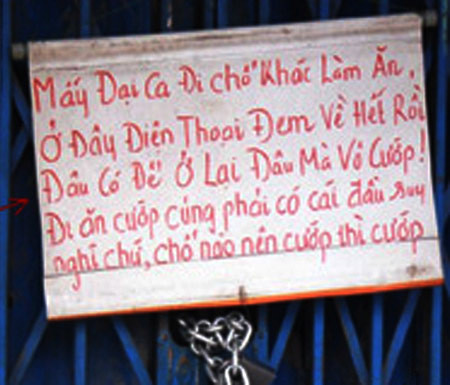 Mấy Đại Ca Đi chổ Khác Làm Ăn.
Ở Đây Điện Thoại Đem Về Hết Rồi
Đâu Có Để Ở Lại Đâu Mà Vô Cướp!
Đi ăn cướp cúng phải có cái đầu suy
nghĩ chứ, chổ nào nên cướp thì cướp